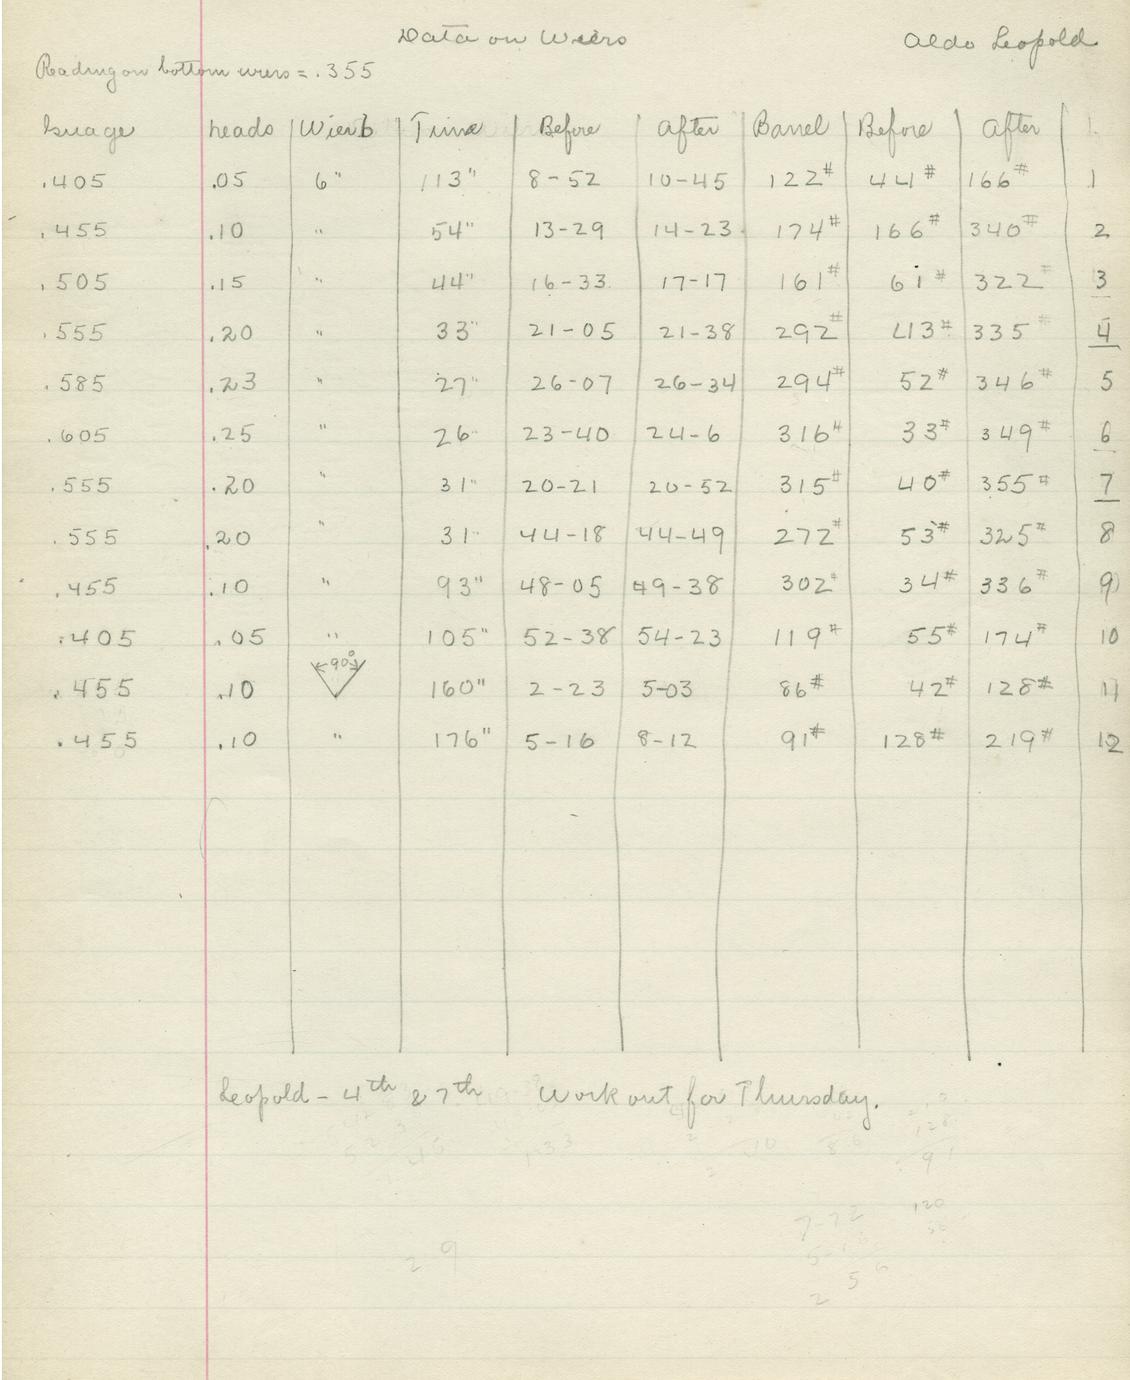 Data on Wiers
Aldo Leopold
Reading on bottom wiers = .355
Guage heads Wier b Time Before After Barrel Before After
.405 .05 6" 113" 8-52 10-45 122# 44# 166# 1
.455 .10 " 54" 13-29 14-23 174# 166# 340# 2
.505 .15 " 44" 16-33 17-17 161# 61# 322# 3
.555 .20 " 33" 21-05 21-38 292# 43# 335# 4
.585 .23 " 27" 26-07 26-34 294# 52# 346# 5
.605 .25 " 26" 23-40 24-6 316# 33# 349# 6
.555 .20 " 31" 20-21 20-52 315# 40# 355# 7
.555 .20 " 31" 44-18 44-49 272# 53# 325# 8
.455 .10 " 93" 48-05 49-38 302# 34# 336# 9
.405 .05 " 105" 52-38 54-23 119# 55# 174# 10
.455 .10 90° 160" 2-23 5-03 86# 42# 128# 11
.455 .10 " 176" 5-16 8-12 91# 128# 219# 12
Leopold - 4th & 7th Work out for Thursday.